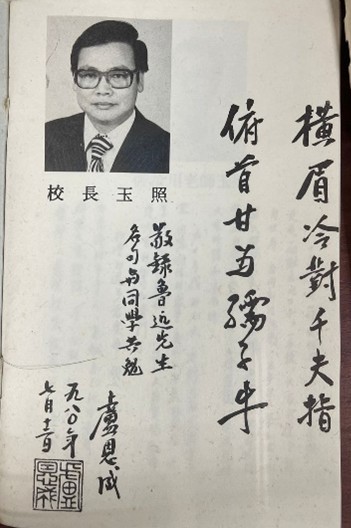 校長玉照
橫眉冷對千夫指
俯首甘为孺子牛
敬錄魯迅先生
名句与同學共勉
盧恩成
一九八〇年
七月十二日